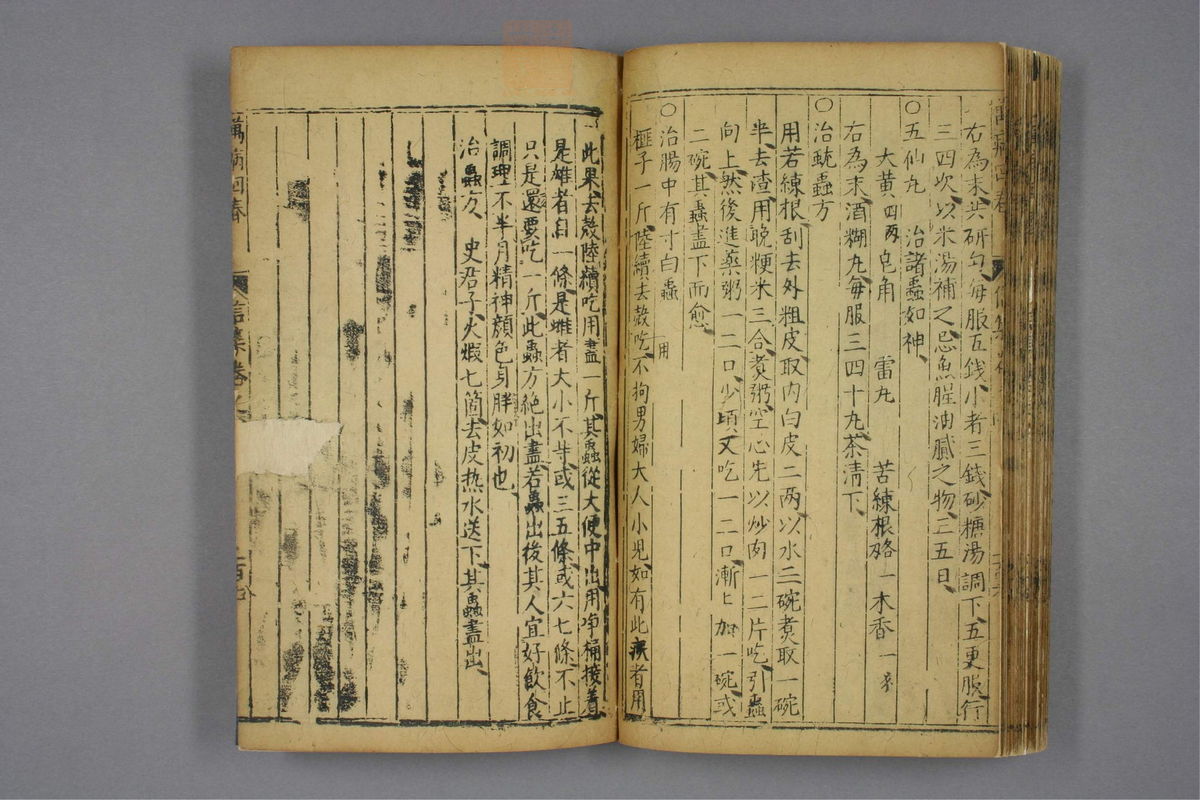 右為末共研勻每服五錢小者三錢砂糖湯調下五更服行
三四次以米湯補之忌魚腥油膩之物三五日
○五仙丸 治諸蟲如神
大黃四两 皂角 雷丸 苦練根 一木香一
右為末酒糊丸每服三四十丸茶清下
○治蟲方
用若練根刮去外粗皮取内白皮二两以水三碗煑取一碗
半去渣用晚粳米三合煑粥空心先以炒肉一二片吃引蟲
向上然後進藥粥一二口少頃又吃一二口漸〻加一碗或
二碗其蟲盡下而愈
○治腸中有寸白蟲 用
榧子一斤陸續去殼吃不拘男婦大人小児如有此疾者用
此果去殼陸續吃用盡一斤其蟲從大便中出用净桶接着
是雄者自一條是雌者大小不等或三五條或六七條不止
只是還要吃一斤此蟲方絕出盡若蟲出後其人宜好飲食
調理不半月精神顔色身胖如初也
治蟲方 史君子火煆七箇去皮热水送下其蟲盡出
萬病回春 信集卷 百七